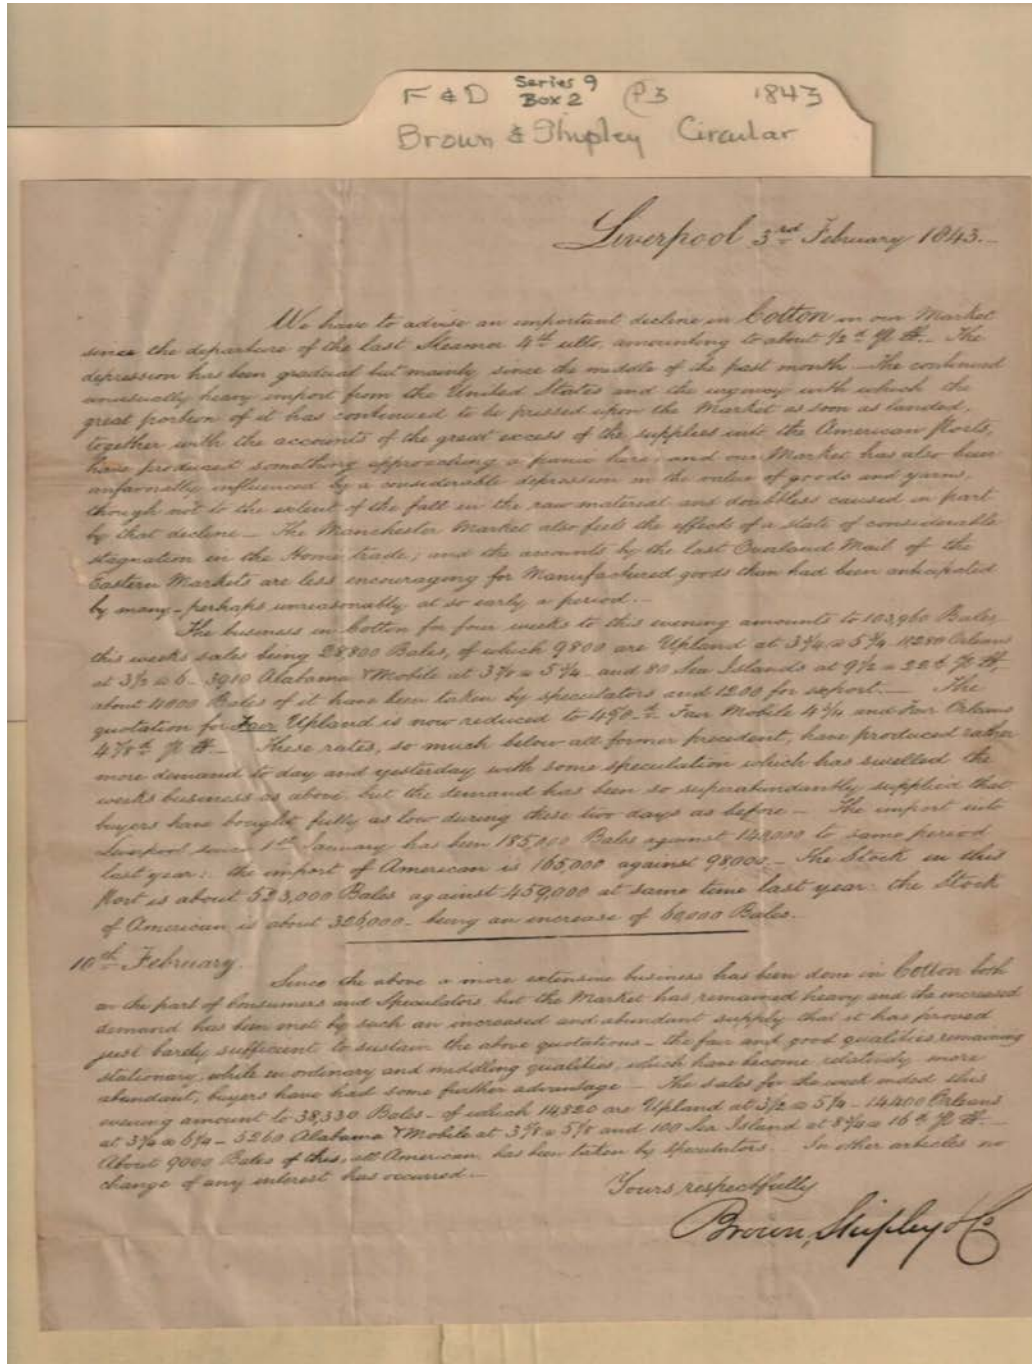 F & D Series 9 Box 2 P3 1843
Brown & Shipley Circular
Liverpool 3rd February 1843.
We have to advise an important decline in Cotton in our Market
since the departure of the last Steamer 4th ulto. amounting to about 1/2d ℔ lb. The
depression has been gradual but mainly since the middle of the past month — The continued
unusually heavy import from the United States and the urgency with which the
great portion of it has continued to be pressed upon the Market as soon as landed,
together with the accounts of the great excess of the supplies into the American ports,
have produced something approaching a panic here; and our Market has also been
unfavorably influenced by a considerable depression in the value of goods and yarns,
though not to the extent of the fall in the raw material and doubtless caused in part
by that decline — The Manchester Market also feels the effects of a state of considerable
stagnation in the Home trade; and the accounts by the last Overland Mail of the
Eastern Markets are less encouraging for Manufactured goods than had been anticipated
by many — perhaps unreasonably at so early a period. —
The business in Cotton for four weeks to this evening amounts to 103,960 Bales,
this weeks sales being 28,800 Bales, of which 9800 are Upland at 3 3/4 a 5 3/4 11280 Orleans
at 3 1/2 a 6 - 3900 Alabama & Mobile at 3 7/8 a 5 3/4 and 80 Sea Islands at 9 1/2 a 22d ℔ lb.
about 4000 Bales of it have been taken by speculators and 1200 for export. — The
quotation for Fair Upland is now reduced to 4 5/8d Fair Mobile 4 3/4 and Fair Orleans
4 7/8d ℔ lb. — These rates, so much below all former precedent, have produced rather
more demand to day and yesterday with some speculation which has swelled the
weeks business as above, but the demand has been so superabundantly supplied that
buyers have bought fully as low during these two days as before — The import into
Liverpool since 1st January has been 185,000 Bales against 140,000 to same period
last year: the import of American is 165,000 against 98000. — The Stock in this
Port is about 523,000 Bales against 459,000 at same time last year: the Stock
of American is about 326,000 — being an increase of 60,000 Bales.
10th February.
Since the above a more extensive business has been done in Cotton both
on the part of Consumers and Speculators but the Market has remained heavy and the increased
demand has been met by such an increased and abundant supply that it has proved
just barely sufficient to sustain the above quotations — the fair and good qualities remaining
stationary, while in ordinary and middling qualities, which have become relatively more
abundant, buyers have had some further advantage — The sales for the week ended this
evening amount to 38,330 Bales — of which 14820 are Upland at 3 1/2 a 5 3/4 - 14400 Orleans
at 3 3/8 a 6 1/4 - 5260 Alabama & Mobile at 3 3/8 a 5 5/8 and 100 Sea Island at 8 3/4 a 16d ℔ lb. —
About 9000 Bales of this, all American, has been taken by speculators. In other articles no
change of any interest has occurred. —
Yours respectfully
Brown, Shipley & Co